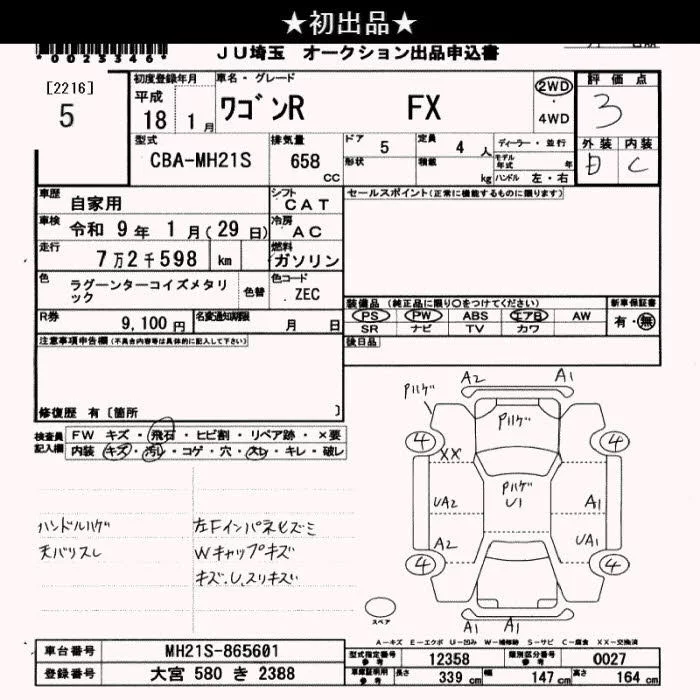 ★初出品★
*0023346*
JU埼玉 オークション出品申込書
[2216]
5
初度登録年月
平成
18 1月
車名・グレード
ワゴンR FX
2WD
4WD
評価点
3
外装 内装
C
型式
CBA-MH21S
排気量
658
CC
ドア
5
定員
4 人
形状
積載
kg
ディーラー・並行
モデル年式 年
ハンドル 左・右
車歴
自家用
シフト
CAT
車検
令和 9年 1月(29日)
冷房
AC
走行
7万2千598 km
燃料
ガソリン
色
ラグーンターコイズメタリック
色替
色コード
ZEC
R券
9,100円
名変通知期限
月 日
セールスポイント(正常に機能するものに限ります)
装備品 (純正品に限り○をつけてください)
新車保証書
PS PW ABS エアB AW
SR ナビ TV カワ
有・無
後日品
注意事項申告欄(不具合内容等は具体的に記入して下さい)
修復歴 有〔箇所 〕
検査員記入欄
FW キズ・飛石・ヒビ割・リペア跡・×要
内装・キズ・汚レ・コゲ・穴・スレ・キレ・破レ
ハンドルハゲ
天バリスレ
左Fインパネキズミ
Wキャップキズ
キズ.U.スリキズ
A2 A1
Pハゲ
Pハゲ
4 4
XX
Pハゲ
U1
UA2 A1
A2 UA1
4 4
スペア
A1 A1
A-キズ E-エクボ U-凹み W-補修跡 S-サビ C-腐食 XX-交換済
車台番号
MH21S-865601
登録番号
大宮 580 き 2388
型式指定番号
参考
12358
類別区分番号
参考
0027
車庫証明用
参考
長さ
339 cm
幅
147 cm
高さ
164 cm